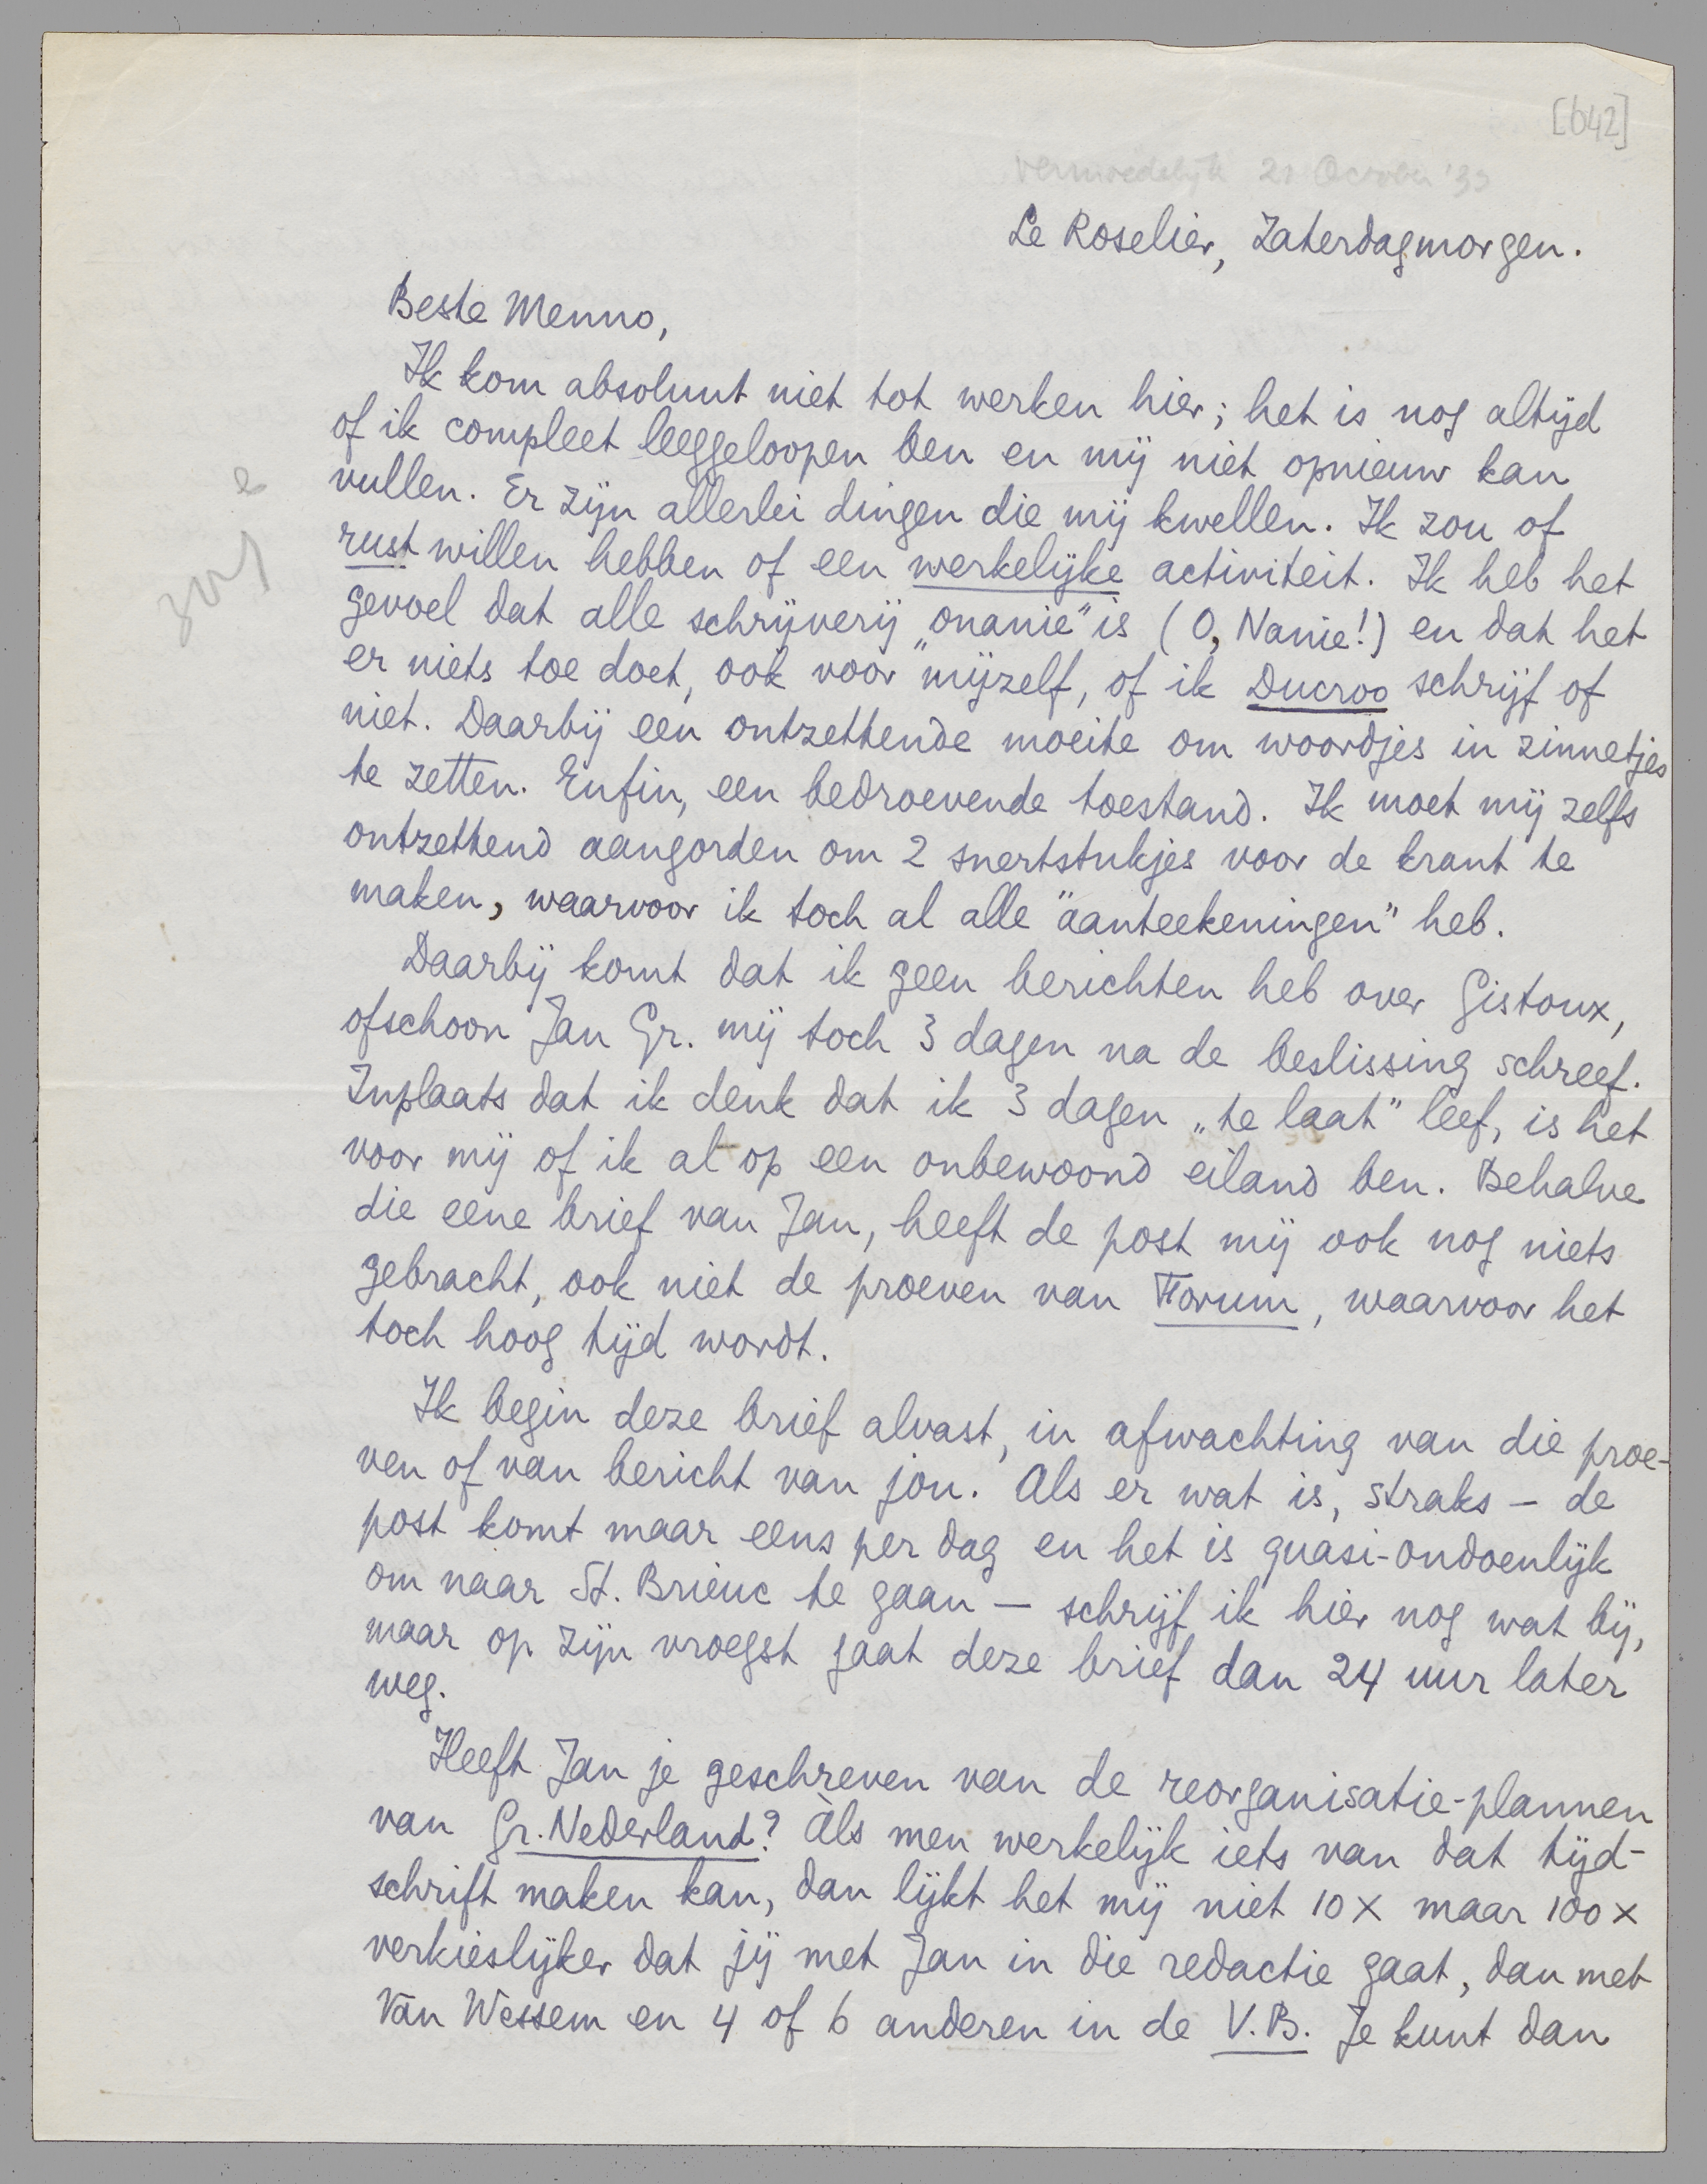 [642]
Vermoedelijk 21 October '33
Le Roselier, Zaterdagmorgen.
Beste Menno,
Ik kom absoluut niet tot werken hier; het is nog altijd
of ik compleet leeggeloopen ben en mij niet opnieuw kan
vullen. Er zijn allerlei dingen die mij kwellen. Ik zou of
rust willen hebben of een werkelijke activiteit. Ik heb het
gevoel dat alle schrijverij „onanie" is (O, Nanie!) en dat het
er niets toe doet, ook voor mijzelf, of ik Ducroo schrijf of
niet. Daarbij een ontzettende moeite om woordjes in zinnetjes
te zetten. Enfin, een bedroevende toestand. Ik moet mij zelfs
ontzettend aangorden om 2 snertstukjes voor de krant te
maken, waarvoor ik toch al alle "aanteekeningen" heb.
Daarbij komt dat ik geen berichten heb over Gistoux,
ofschoon Jan Gr. mij toch 3 dagen na de beslissing schreef.
Inplaats dat ik denk dat ik 3 dagen „te laat" leef, is het
voor mij of ik al op een onbewoond eiland ben. Behalve
die eene brief van Jan, heeft de post mij ook nog niets
gebracht, ook niet de proeven van Forum, waarvoor het
toch hoog tijd wordt.
Ik begin deze brief alvast, in afwachting van die proe-
ven of van bericht van jou. Als er wat is, straks – de
post komt maar eens per dag en het is quasi-ondoenlijk
om naar St. Brieuc te gaan – schrijf ik hier nog wat bij,
maar op zijn vroegst gaat deze brief dan 24 uur later
weg.
Heeft Jan je geschreven van de reorganisatie-plannen
van Gr. Nederland? Als men werkelijk iets van dat tijd-
schrift maken kan, dan lijkt het mij niet 10 x maar 100 x
verkieslijker dat jij met Jan in die redactie gaat, dan met
Van Wessem en 4 of 6 anderen in de V.B. Je kunt dan